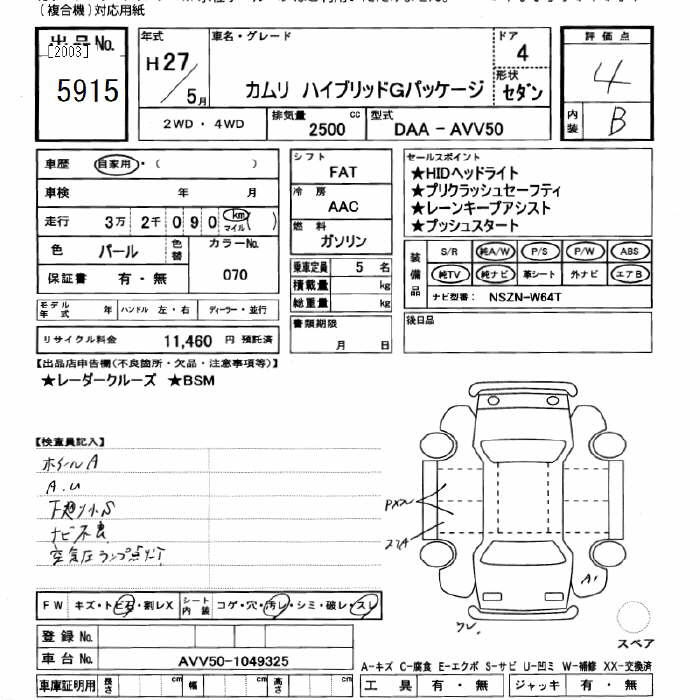 (複合機)対応用紙
出品No.
[2003]
5915
年式
H27/5月
車名・グレード
カムリ ハイブリッドGパッケージ
ドア
4
形状
セダン
評価点
4
内装
B
2WD・4WD
排気量
2500 cc
型式
DAA-AVV50
車歴 自家用・( )
車検 年 月
走行 3万 2千 0 9 0 km マイル ( )
色 パール 色替
カラーNo. 070
保証書 有・無
モデル年式 年 ハンドル 左・右 ディーラー・並行
リサイクル料金 11,460 円 預託済
シフト
FAT
冷房
AAC
燃料
ガソリン
乗車定員 5 名
積載量 kg
総重量 kg
書類期限
月 日
セールスポイント
★HIDヘッドライト
★プリクラッシュセーフティ
★レーンキープアシスト
★プッシュスタート
装備品
S/R 純A/W P/S P/W ABS
純TV 純ナビ 革シート 外ナビ エアB
ナビ型番: NSZN-W64T
後日品
【出品店申告欄(不良箇所・欠品・注意事項等)】
★レーダークルーズ ★BSM
【検査員記入】
ホイールA
A.U
下廻り小S
ナビ不良
空気圧ランプ点灯
A1
FW キズ・トビ石・割レX
シート内装 コゲ・穴・汚レ・シミ・破レ・スレ
登録No.
車台No. AVV50-1049325
車庫証明用 長さ cm 幅 cm 高さ cm
スペア
A-キズ C-腐食 E-エクボ S-サビ U-凹ミ W-補修 XX-交換済
工具 有・無 ジャッキ 有・無